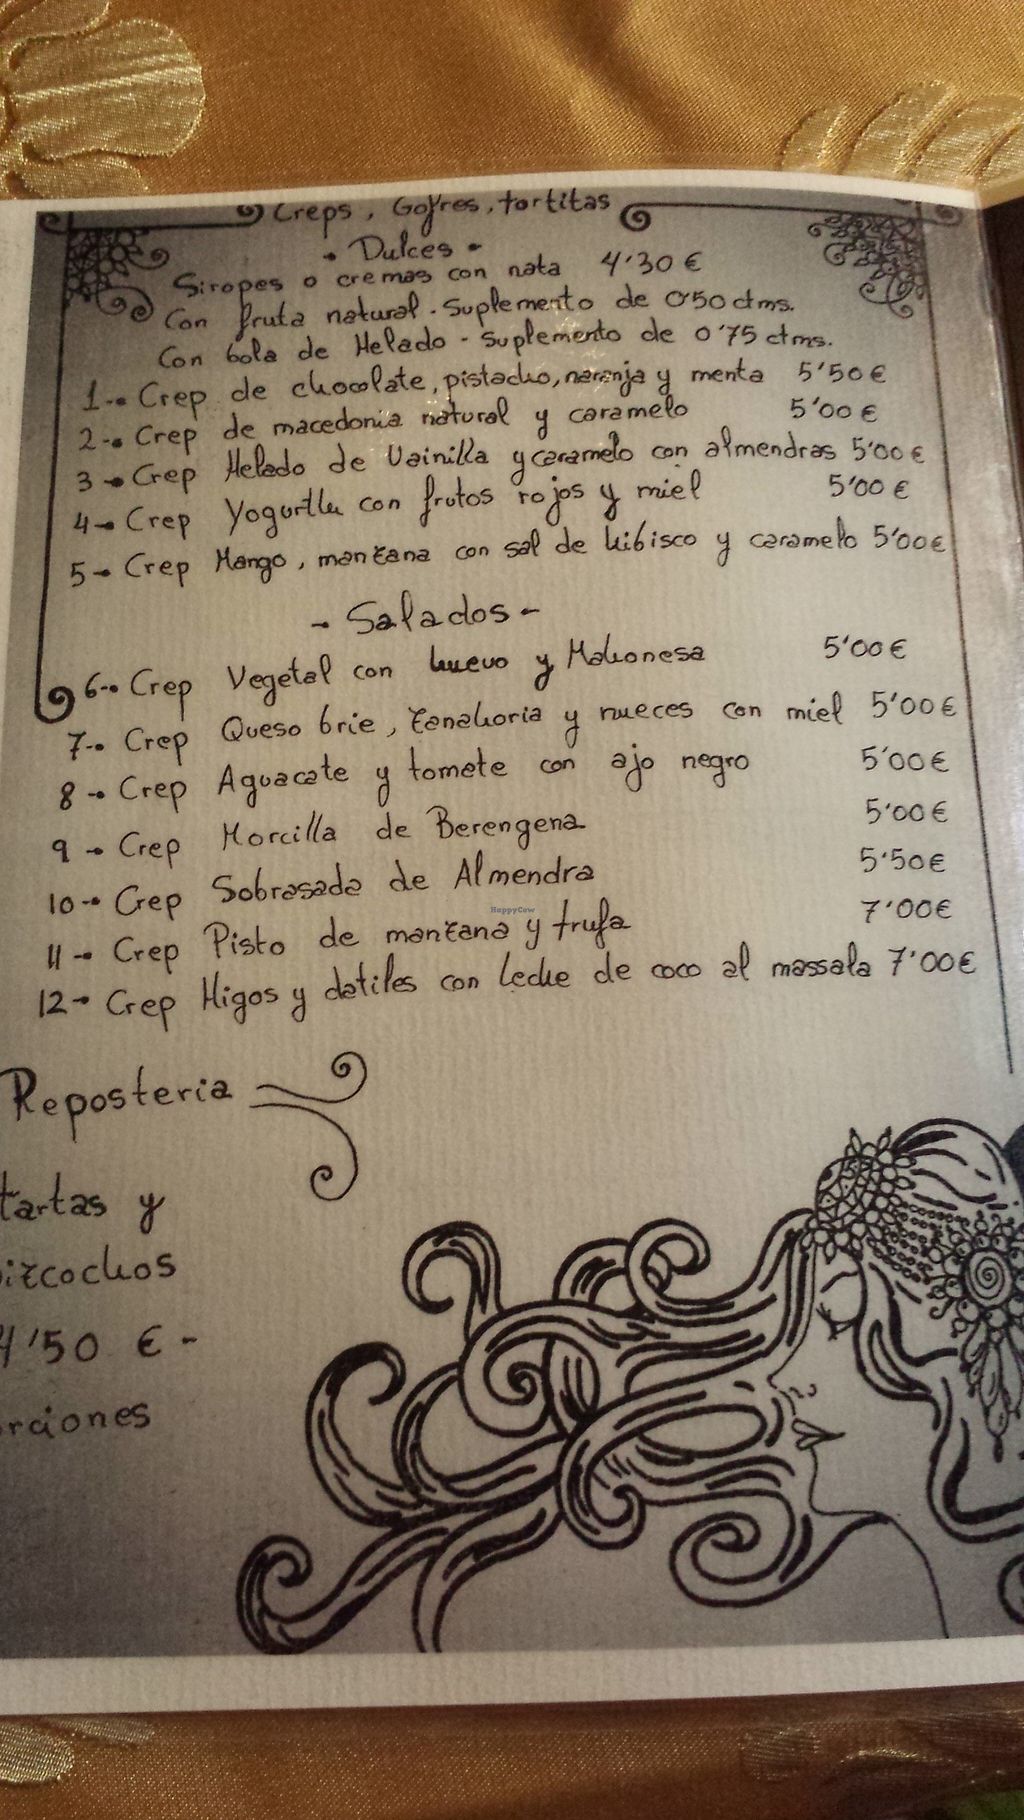 Creps, Gofres, tortitas
- Dulces -
Siropes o cremas con nata 4'30 €
Con fruta natural. Suplemento de 0'50 ctms.
Con bola de Helado - Suplemento de 0'75 ctms.
1-. Crep de chocolate, pistacho, naranja y menta 5'50 €
2-. Crep de macedonia natural y caramelo 5'00 €
3-. Crep Helado de Vainilla y caramelo con almendras 5'00 €
4-. Crep Yogurthu con frutos rojos y miel 5'00 €
5-. Crep Mango, manzana con sal de hibisco y caramelo 5'00 €
- Salados -
6-. Crep Vegetal con huevo y Mahonesa 5'00 €
7-. Crep Queso brie, zanahoria y nueces con miel 5'00 €
8-. Crep Aguacate y tomate con ajo negro 5'00 €
9-. Crep Morcilla de Berengena 5'00 €
10-. Crep Sobrasada de Almendra 5'50 €
11-. Crep Pisto de manzana y trufa 7'00 €
12-. Crep Higos y datiles con Leche de coco al massala 7'00 €
HappyCow
Reposteria
tartas y
izcochos
4'50 € -
rciones